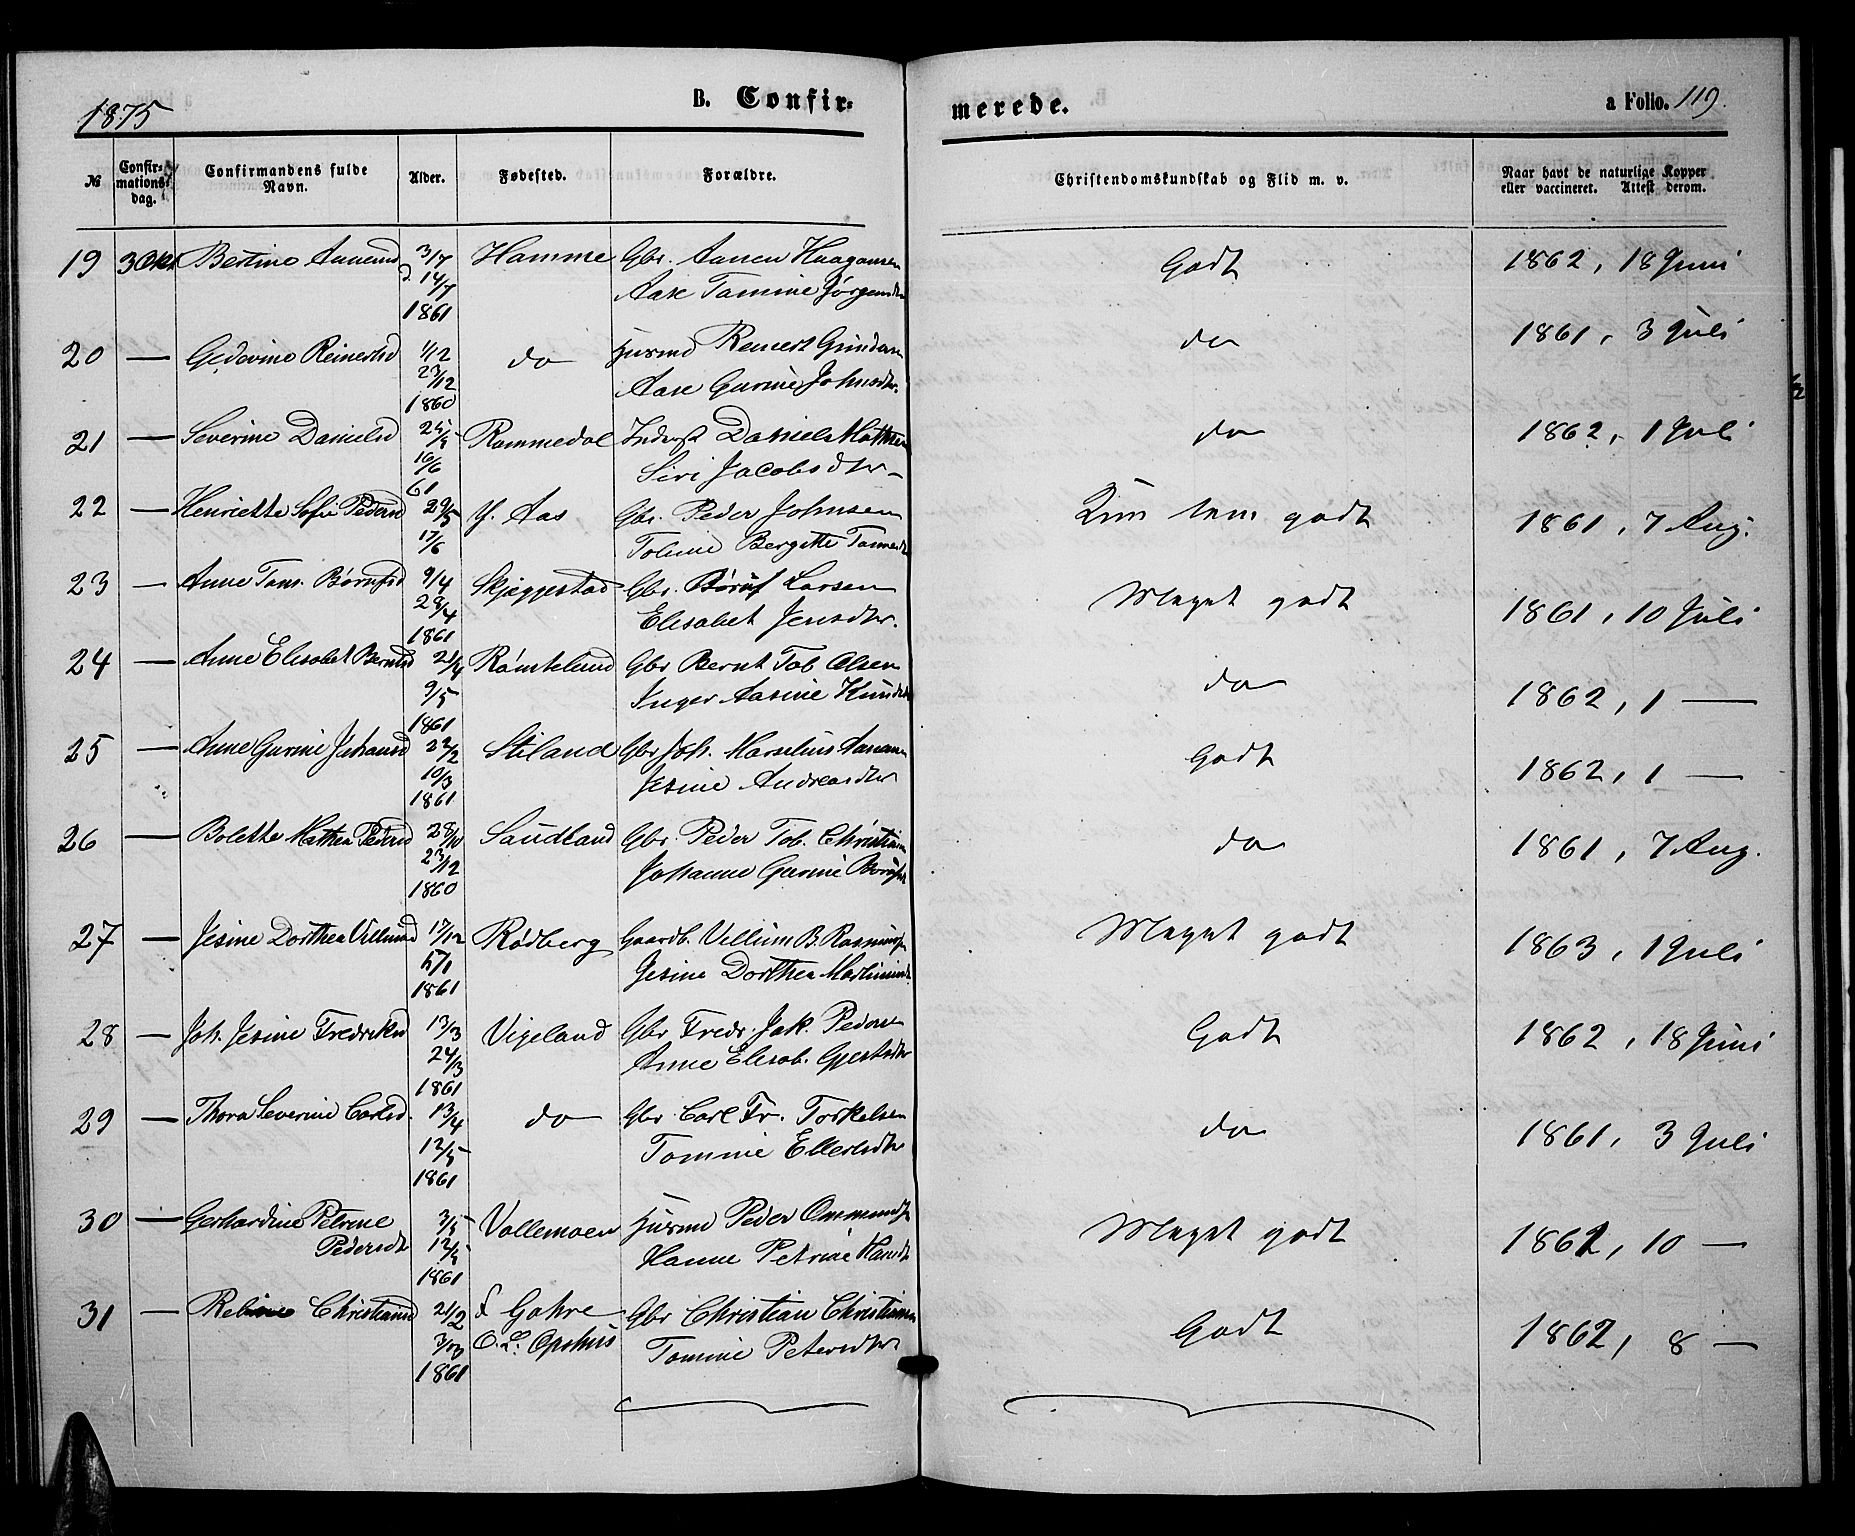 1875
B. Confir-
merede.
a Folio. 119.
№ Confirmations dag. Confirmandens fulde Navn. Alder. Fødested. Forældre. Christendomskundskab og Flid m. v. Naar havt de naturlige Kopper eller vaccineret. Attest derom.
19 3 Okt Bertine Aanensd 3/7 Homme Gbr. Aanen Haagonsen Godt 1862, 18 Juni
d. 14/7 Aase Tomine Jørgensdtr
1861
20 — Gedevine Reinertsd 1/12 do Husmd Reinert Gundersen do 1861, 3 Juli
23/12 Aase Gurine Johnsdtr.
1860
21 — Severine Danielsd 25/5 Rommedal Inderst Daniel Mathisen do 1862, 1 Juli
16/6 Siri Jacobsdtr —
61
22 — Henriette Sofie Pedersd 29/5 y. Aas Gbr. Peder Johnsen godt 1861, 7 Aug.
17/6 Bergitte
23 — Anne Tom. Børufsd 9/4 Skjeggestad Gbr. Børuf Larsen Meget godt 1861, 10 Juli
28/4 Elisabet Jensdtr.
1861
24 — Anne Elisabet Berntsd 21/4 Rømteland Gbr Bernt Tob. Olsen do 1862, 1 —
9/5 Inger Aasine Knudsdtr
1861
25 — Anne Gurine Johansd 22/2 Stiland Gbr Joh. Marselius Aanensen Godt 1862, 1 —
10/3 Jesine Andreasdtr
1861
26 — Bolette Mathea Pedersd 28/10 Saudland Gbr. Peder Tob. Christiansen do 1861, 7 Aug.
23/12 Johanne Gurine Børufsdt
1860
27 — Jesine Dorthea Villumsd 17/12 Rødberg Gaardb. Villum B. Rasmussen Meget godt 1863, 1 Juli
6/1 Jesine Dorthea Martinusdt.
1861
28 — Joh. Jesine Fredriksd 13/3 Vigeland Gbr Fredr. Jak. Pedersen Godt 1862, 18 Juni
24/3 Anne Elisab. Gjertsdtr
1861
29 — Thora Severine Carlsd. 13/4 do Gbr Carl Fr. Torkelsen do 1861, 3 Juli
12/5 Tomine Ellertsdtr
1861
30 — Gerhardine Petrine 3/5 Vollemoen Husmd Peder Ommundsen Meget godt 1862, 10 —
Pedersdt 12/5 Hanne Petrine Hansdt
1861
31 — Christiansd 21/2 f Gahre Gbr Christian Christiansen Godt 1862, 8 —
3/3 O. L. Opshus Tomine Petersdtr
1861